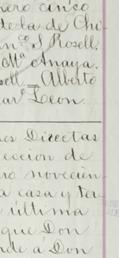 nero cinco
te la de Chi-
n^co J. Roselló
M^a Anaya.
sell = Alberto
car^s Leon
nes Directas
eccion de
ro novecien-
a casa y te-
e última
que Don
nde á Don